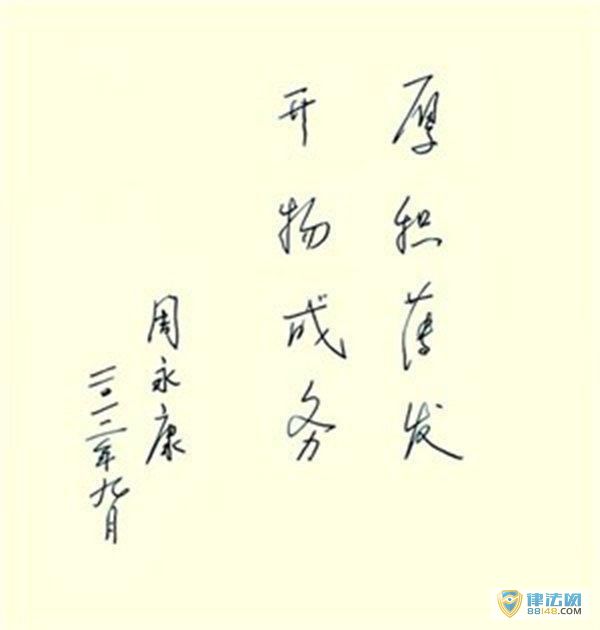 厚积薄发
开物成务
周永康
二〇一二年九月
律法网
88148.com